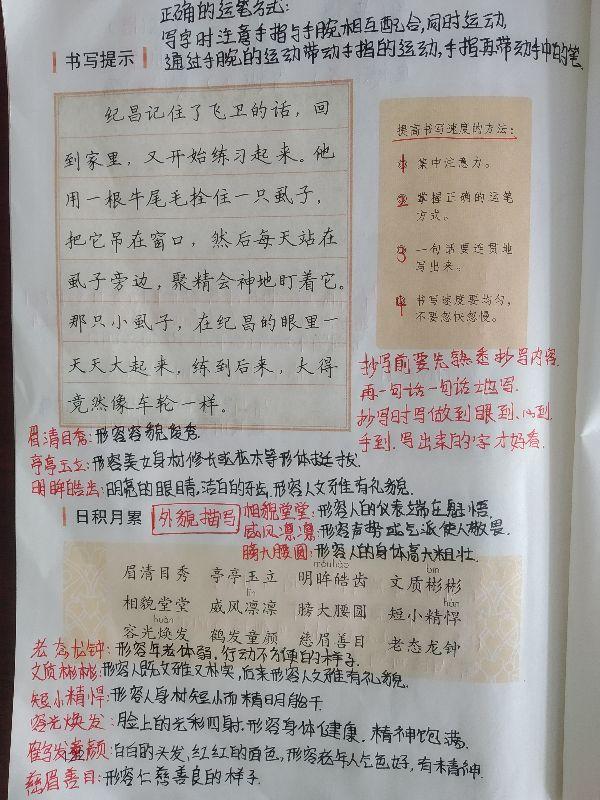 正确的运笔方式:
写字时注意手指与手腕相互配合,同时运动,
通过手腕的运动带动手指的运动,手指再带动手中的笔.
书写提示
纪昌记住了飞卫的话，回
到家里，又开始练习起来。他
用一根牛尾毛拴住一只虱子，
把它吊在窗口，然后每天站在
虱子旁边，聚精会神地盯着它。
那只小虱子，在纪昌的眼里一
天天大起来，练到后来，大得
竟然像车轮一样。
提高书写速度的方法：
1 集中注意力。
2 掌握正确的运笔
方式。
3 一句话要连贯地
写出来。
4 书写速度要均匀，
不要忽快忽慢。
抄写前要先熟悉抄写内容
再一句话一句话地写.
抄写时写做到眼到、心到
手到.写出来的字才好看.
眉清目秀:形容容貌俊秀.
亭亭玉立:形容美女身材修长或花木等形体挺拔
明眸皓齿:明亮的眼睛,洁白的牙齿,形容人文雅有礼貌.
日积月累
外貌描写
相貌堂堂:形容人的仪表端庄魁梧.
威风凛凛:形容声势或气派使人敬畏.
膀大腰圆:形容人的身体高大粗壮.
móu hào
bīn
眉清目秀 亭亭玉立 明眸皓齿 文质彬彬
lǐn
hàn
相貌堂堂 威风凛凛 膀大腰圆 短小精悍
huàn
容光焕发 鹤发童颜 慈眉善目 老态龙钟
老态龙钟:形容年老体弱,行动不方便的样子.
文质彬彬:形容人既文雅又朴实,后来形容人文雅有礼貌.
短小精悍:形容人身材短小而精明能干
容光焕发:脸上的光彩四射.形容身体健康.精神饱满.
鹤发童颜:白白的头发,红红的面色,形容老年人气色好,有精神.
慈眉善目:形容仁慈善良的样子.